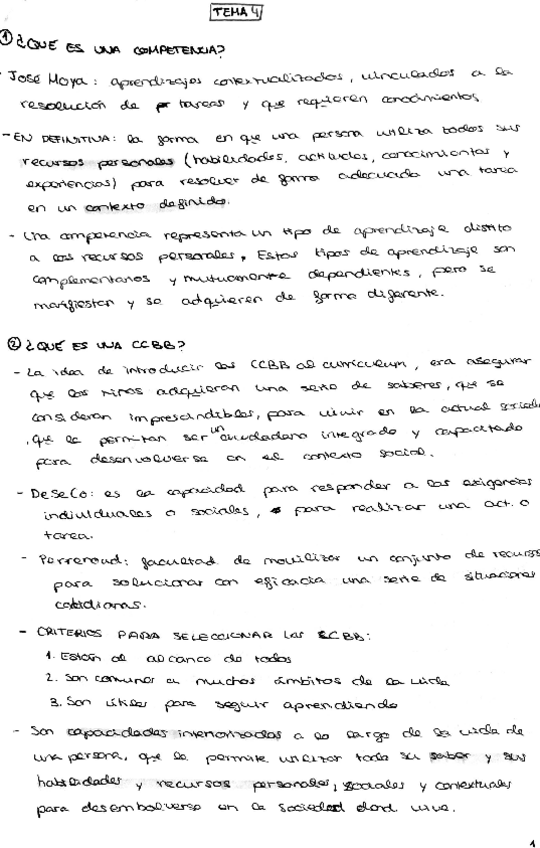 TEMA 4
① ¿QUE ES UNA COMPETENCIA?
José Moya: aprendizajes contextualizados, vinculados a la
resolución de tareas y que requieren conocimientos
- EN DEFINITIVA: la forma en que una persona utiliza todos sus
recursos personales (habilidades, actitudes, conocimientos y
experiencias) para resolver de forma adecuada una tarea
en un contexto definido.
- Una competencia representa un tipo de aprendizaje distito
a los recursos personales, Estos tipos de aprendizaje son
complementarios y mutuamente dependientes, pero se
manifiestan y se adquieren de forma diferente.
② ¿QUÉ ES UNA CCBB?
- La idea de introducir las CCBB al curriculum, era asegurar
que los niños adquieran una serie de saberes, que se
consideran imprescindibles, para vivir en la actual
, que le permitan ser un ciudadano integrado y capacitado
para desenvolverse en el contexto social.
- DeSeCo: es la capacidad para responder a las exigencias
individuales o sociales, para realizar una act. o
tarea.
- Perrenoud: facultad de movilizar un conjunto de recursos
para solucionar con eficacia una serie de situaciones
cotidianas.
- CRITERIOS PARA SELECCIONAR las CCBB:
1. Están al alcance de todos
2. Son comunes a muchos ámbitos de la vida
3. Son útiles para seguir aprendiendo
- Son capacidades interiorizadas a lo largo de la vida de
una persona, que le permite utilizar todo su saber y sus
habilidades y recursos personales, sociales y contextuales
para desembolverse en la sociedad dond vive.
1